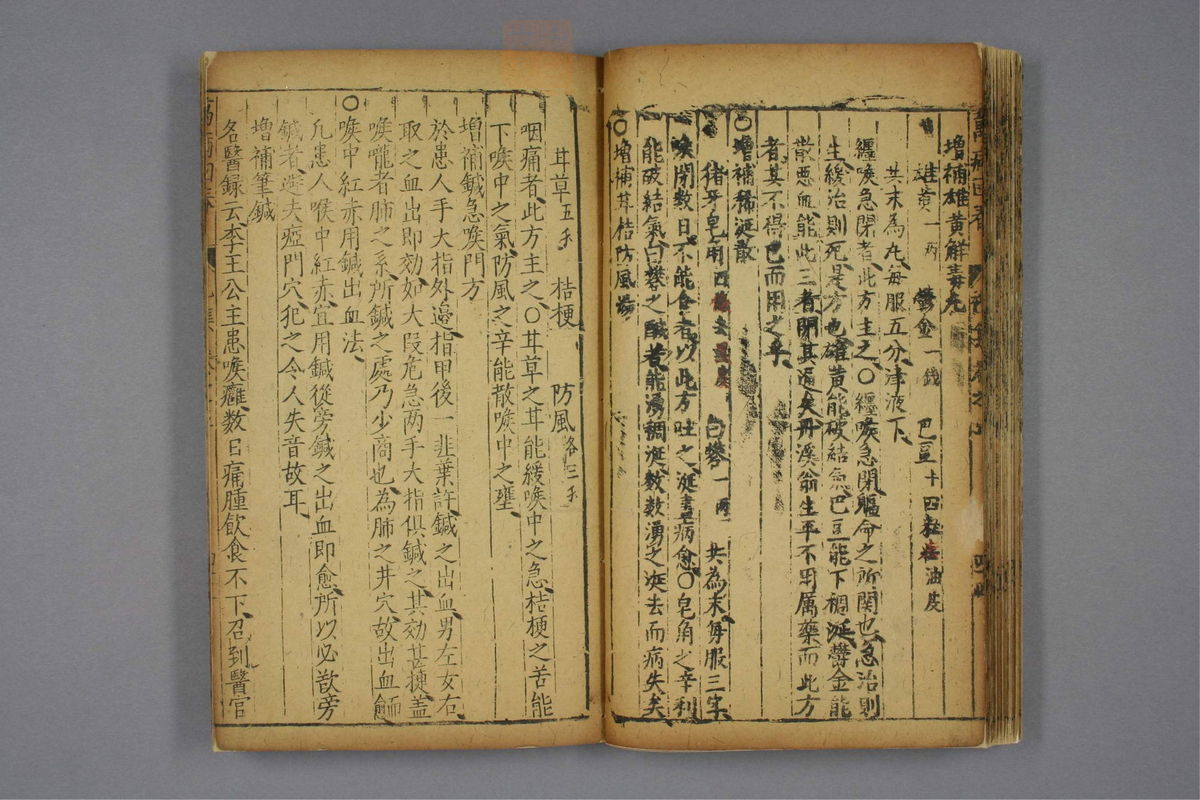 增補雄黃解毒丸
雄黃一兩 鬱金一錢 巴豆十四粒去油皮
共末為丸每服五分津液下
纏喉急閉者此方主之○纏喉急閉軀命之所關也急治則
生緩治則死是方也雄黃能破結氣巴豆能下稠涎鬱金能
散惡血能此三者閉其通矣丹溪翁生平不用厲藥而此方
者其不得已而用之乎
○增補稀涎散
猪牙皂角四 去 皮 白礬一兩 共為末每服三字
喉閉數日不能食者以此方吐之涎盡病愈○皂角之辛利
能破結氣白礬之鹹苦能湧稠涎數數湧之涎去而病失矣
○增補甘桔防風湯
甘草五 桔梗 防風各三
咽痛者此方主之○甘草之甘能緩喉中之急桔梗之苦能
下喉中之氣防風之辛能散喉中之壅
增補鍼急喉門方
於患人手大指外邊指甲後一韮葉許鍼之出血男左女右
取之血出即効如大段危急两手大指俱鍼之其効甚捷盖
喉嚨者肺之系所鍼之處乃少商也為肺之井穴故出血師
○喉中紅赤用鍼出血法
凡患人喉中紅赤宜用鍼從旁鍼之出血即愈所以必欲旁
鍼者避夫瘂門穴犯之令人失音故耳
增補筆鍼
名醫録云李王公主患喉癰数日痛腫飲食不下召到醫官